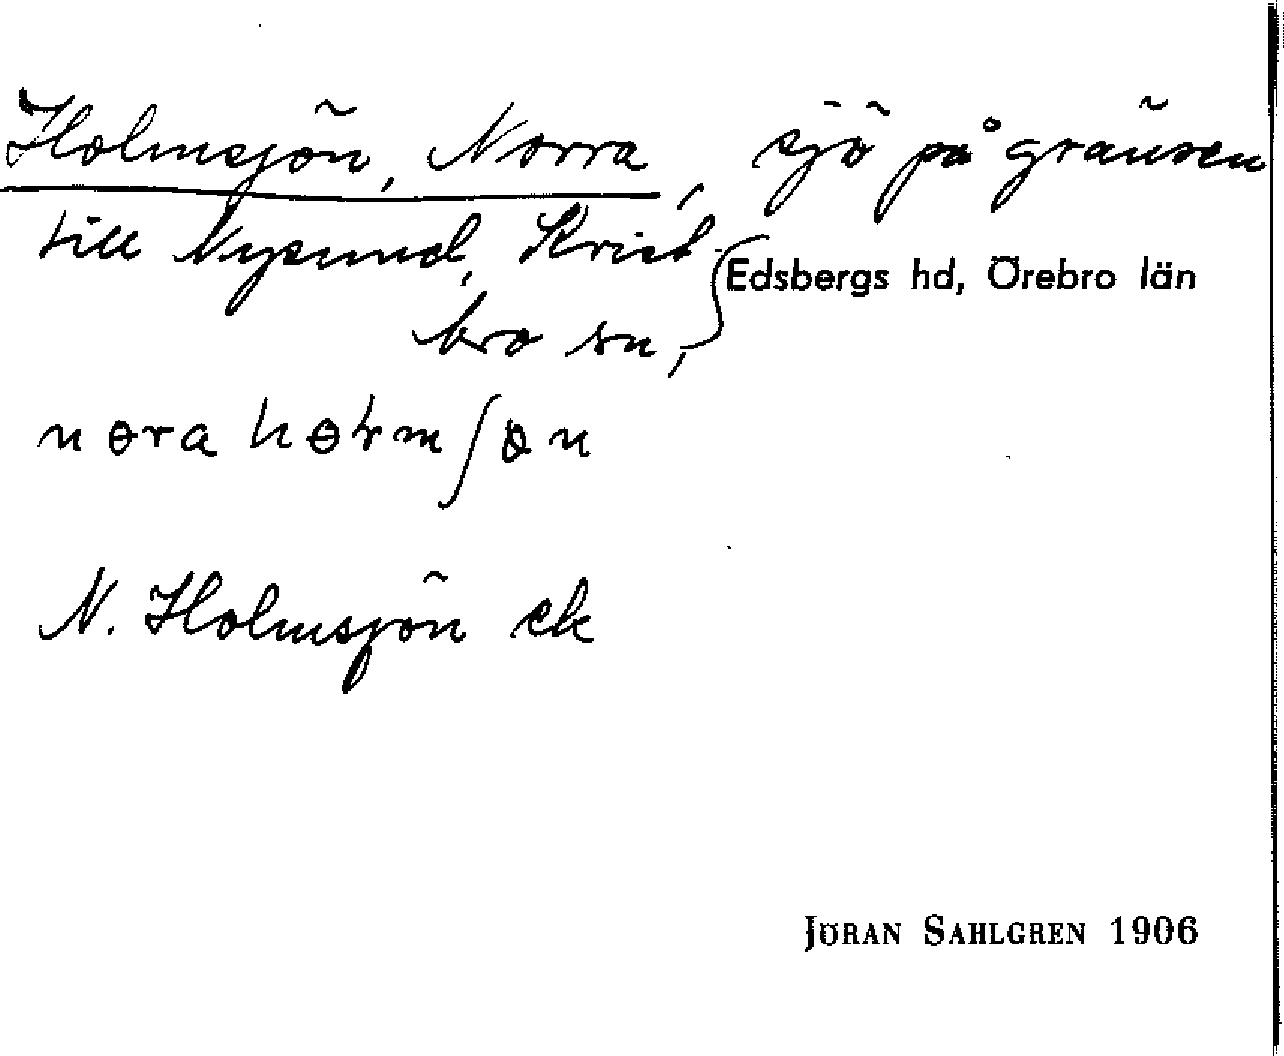 Holmsjön, Norra, sjö på gränsen
till Nysund, Krist-
Edsbergs hd, Örebro län
bro sn,
N. Holmsjön ek
JÖRAN SAHLGREN 1906